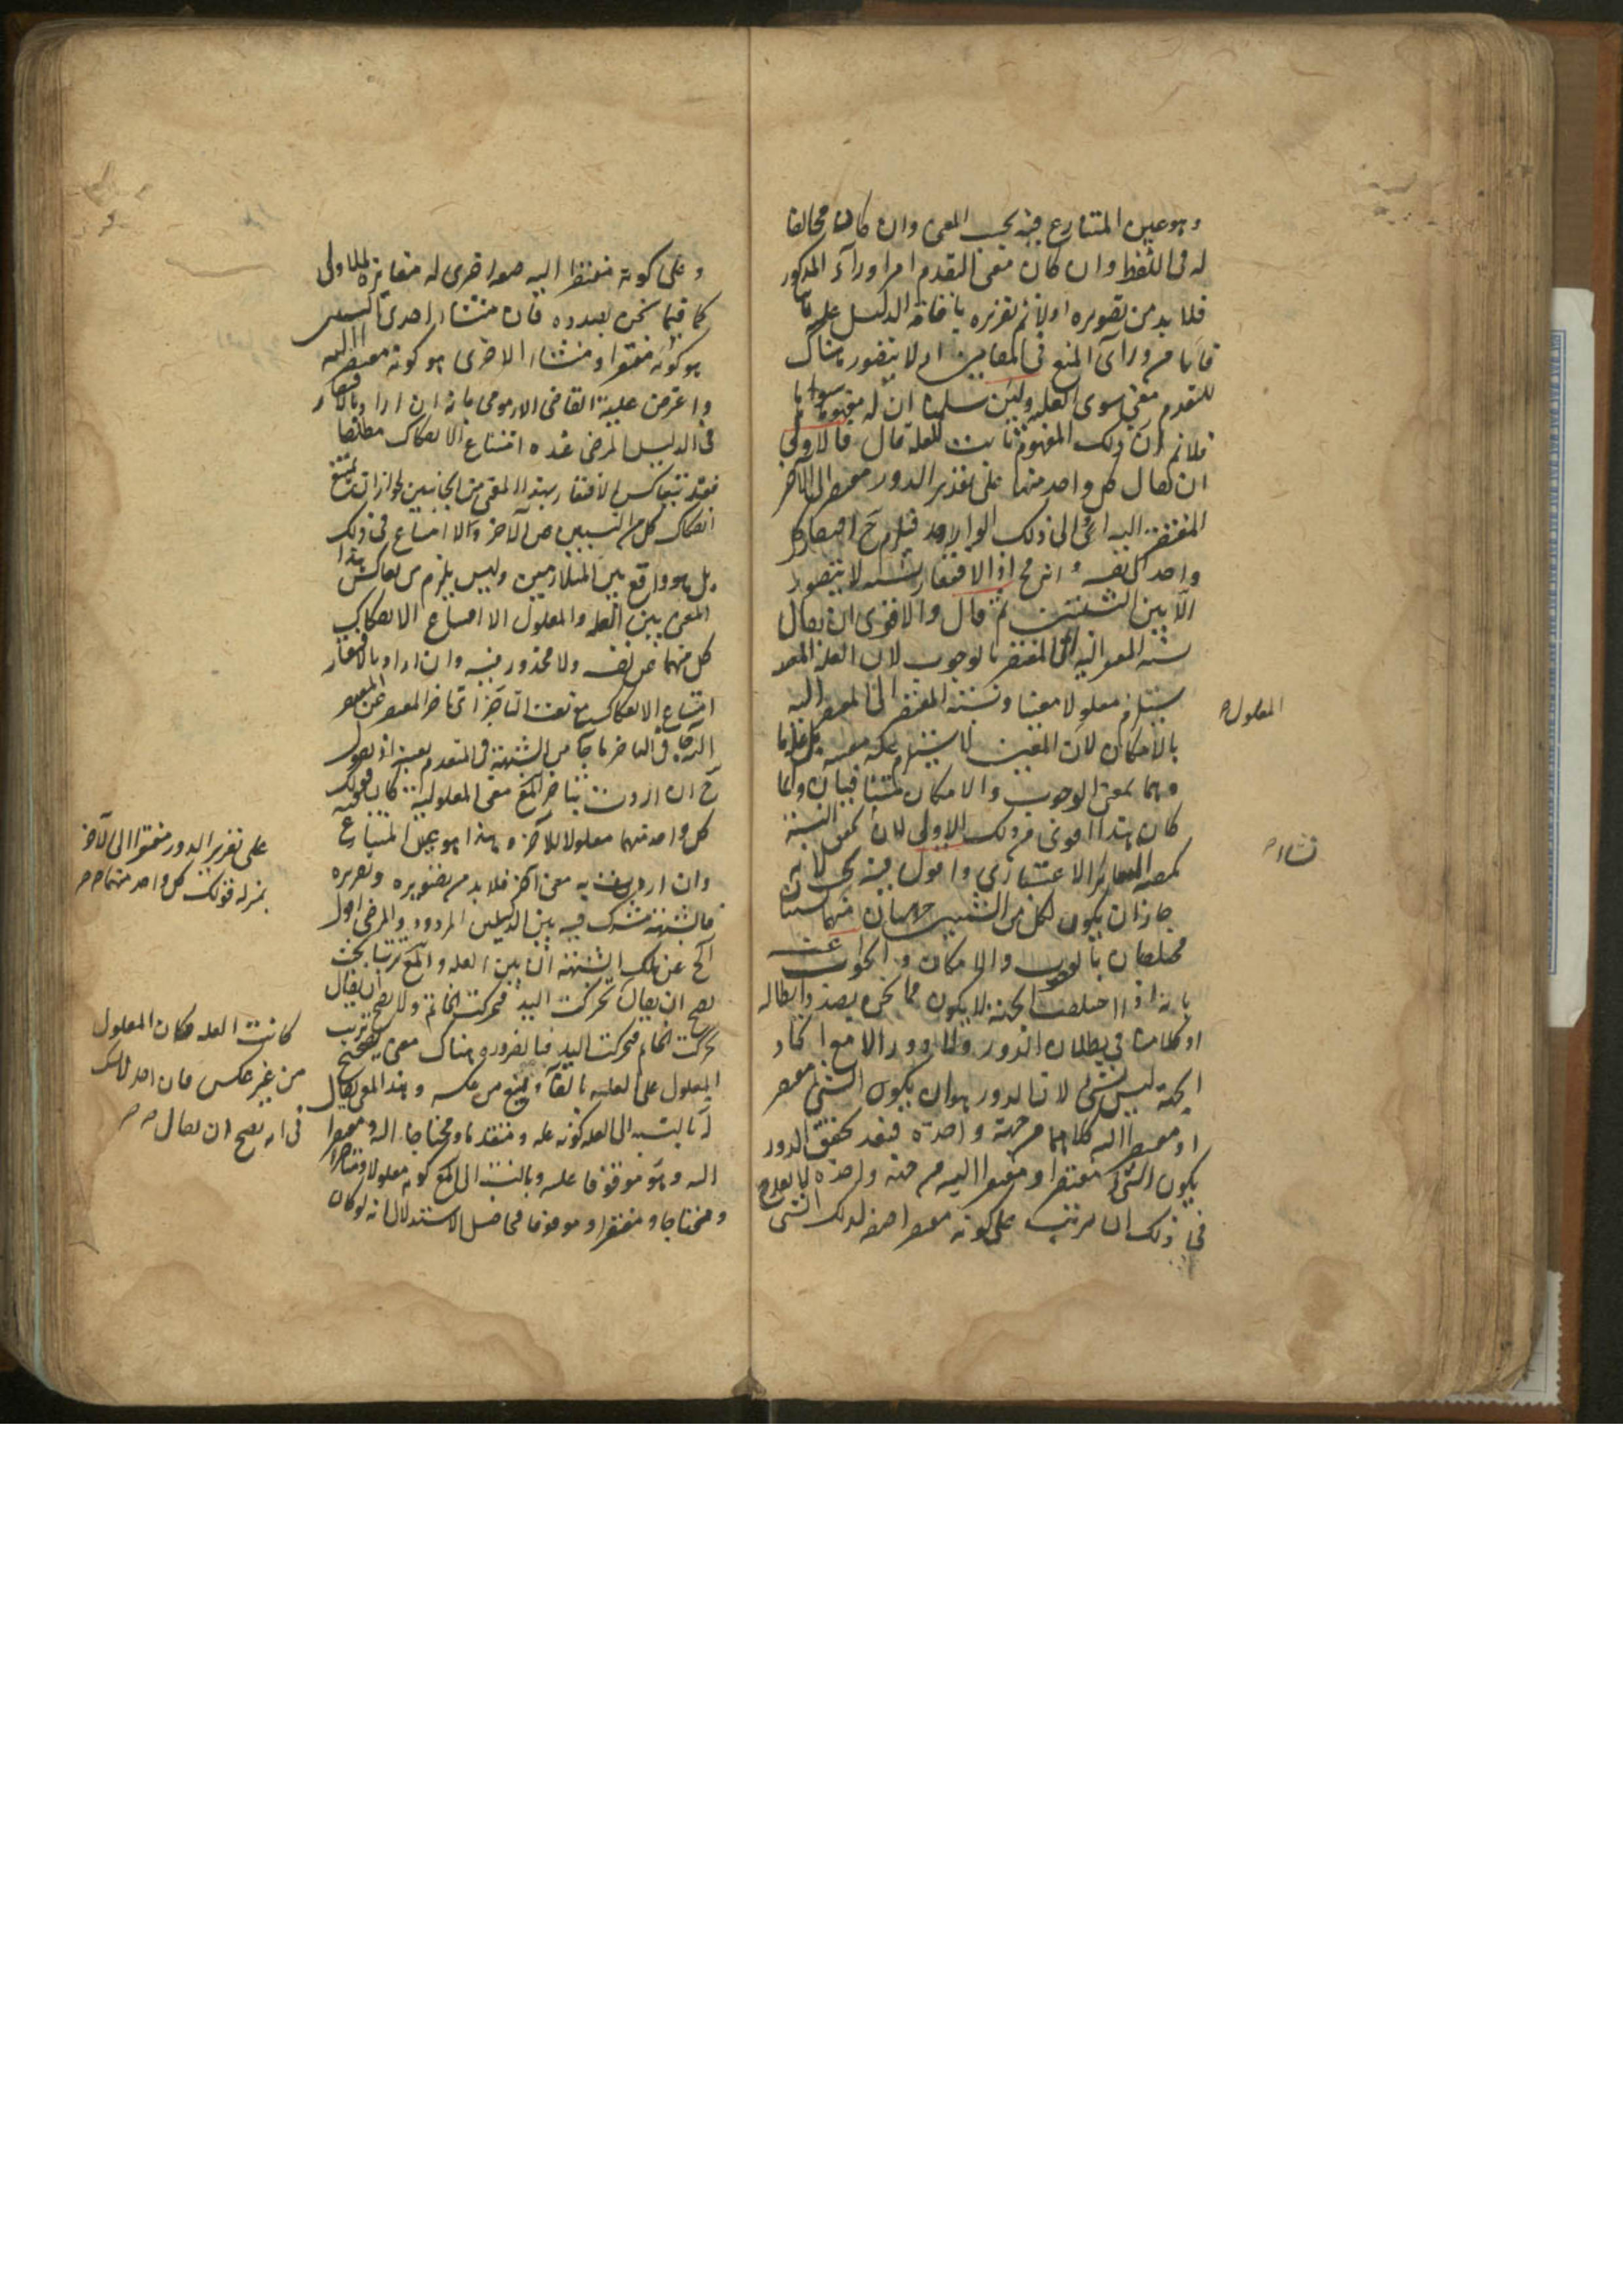 وهو عين المتنازع فيه بحسب المعنى وان كان مخالفا
له في اللفظ وان كان معنى التقدم امرا ورآء المذكور
فلا بد من تصويره اولا ثم تقريره باقامة الدليل عليه
فانا من ورآى المنع في المقامين اذ لا يتصور هناك
للتقدم معنى سوى العلية ولئن سلمنا ان له مفهوما سواها
فلا نم ان ذلك المفهوم ثابت للعلة قال فالاولى
ان يقال كل واحد منهما على تقدير الدور مفتقر الى الآخر
المفتقر اليه اى الى ذلك الواحد فيلزم ح افتقار كل
واحد الى نفسه وانه مح اذ الافتقار نسبة لا يتصور
الا بين الشيئين ثم قال والاقوى ان يقال
نسبة المفتقر اليه الى المفتقر بالوجوب لان العلة المعينة
يستلزم معلولا معينا ونسبة المفتقر الى المفتقر اليه
بالامكان لان المعين لا يستلزم علة معينة بل علة ما
وهما بمعنى الوجوب والامكان متنافيان وانما
كان هذا اقوى من ذلك الاولى لان تحقق النسبة
يكفيه التغاير الاعتبارى واقول فيه بحث لانه
جاز ان يكون لكل من الشيئين جهتان
مختلفتان بالوجوب والامكان والجواب عنه
بانه اذا اختلفت الجهة لا يكون مما نحن بصدد ابطاله
اذ كلامنا في بطلان الدور ولا دور الا مع اتحاد
الجهة ليس بشئ لان الدور هو ان يكون الشئ مفتقرا
او مفتقرا اليه كلاهما من جهة واحدة فبعد تحقق الدور
يكون الشئ مفتقرا ومفتقرا اليه من جهة واحدة لا يقدح
في ذلك ان يترتب على كونه مفتقرا صفة لذلك الشئ
المعلول
وعلى كونه مفتقرا اليه صفة اخرى له مغايرة للاولى
كما فيما نحن بصدده فان منشأ احدى النسبتين
هو كونه مفتقرا ومنشأ الاخرى هو كونه مفتقرا اليه
واعترض عليه القاضى الارموى بانه ان اراد بالافتقار
في الدليل المرضى عنده امتناع الانفكاك مطلقا
فقد يتعاكس الافتقار بهذا المعنى من الجانبين لجواز ان يمتنع
انفكاك كل من الشيئين عن الآخر ولا امتناع في ذلك
بل هو واقع بين المتلازمين وليس يلزم من تعاكس هذا
المعنى بين العلة والمعلول الا امتناع الانفكاك
كل منهما عن نفسه ولا محذور فيه وان اراد بالافتقار
امتناع الانفكاك مع نعت التأخر اى تأخر المفتقر عن المفتقر
اليه جآ في التأخر ما جآ من الشبهة في التقدم بعينه اذ يقول
ح ان اردت بتأخر المع معنى المعلولية كان قولك
كل واحد منهما معلولا للآخر وهذا هو عين المتنازع
وان اردت به معنى آخر فلا بد من تصويره وتقريره
فالشبهة مشترك فيه بين الدليلين المردود والمرضى اقول
الح عن تلك الشبهة ان بين العلة والمع ترتبا بحيث
يصح ان يقال تحركت اليد فتحركت الخاتم ولا يصح ان يقال
تحركت الخاتم فتحركت اليد فبالضرورة هناك معنى يصحح ترتيب
المعلول على العلة بالفآ ويمنع من عكسه وبهذا المعنى يقال
له بالنسبة الى العلة كونه علة ومتقدما ومحتاجا اليه ومفتقرا
اليه وهو موقوفا عليه وبالنسبة الى المع كونه معلولا ومتأخرا
ومحتاجا ومفتقرا وموقوفا فحاصل الاستدلال انه لو كان
على تقدير الدور مفتقرا الى الآخر
بمنزلة قولك كل واحد منهما
كانت العلة فكان المعلول
من غير عكس فان احد لا يشك
في انه يصح ان يقال